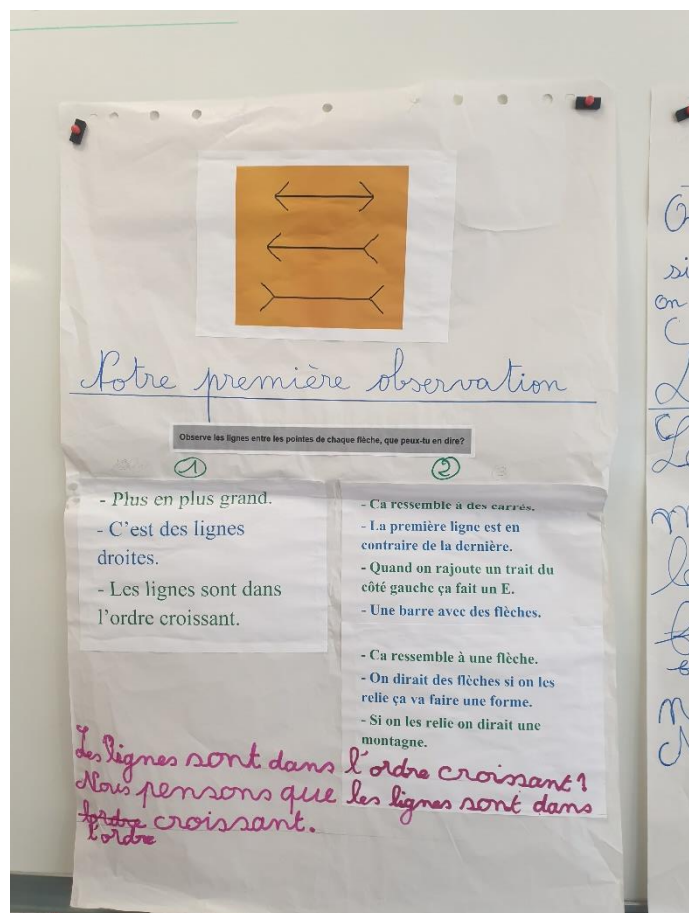 Notre première observation
Observe les lignes entre les pointes de chaque flèche, que peux-tu en dire?
1
- Plus en plus grand.
- C'est des lignes
droites.
- Les lignes sont dans
l'ordre croissant.
2
- Ca ressemble à des carrés.
- La première ligne est en
contraire de la dernière.
- Quand on rajoute un trait du
côté gauche ça fait un E.
- Une barre avec des flèches.
- Ca ressemble à une flèche.
- On dirait des flèches si on les
relie ça va faire une forme.
- Si on les relie on dirait une
montagne.
Les lignes sont dans l'ordre croissant?
Nous pensons que les lignes sont dans
l'ordre croissant.
l'ordre
si
on